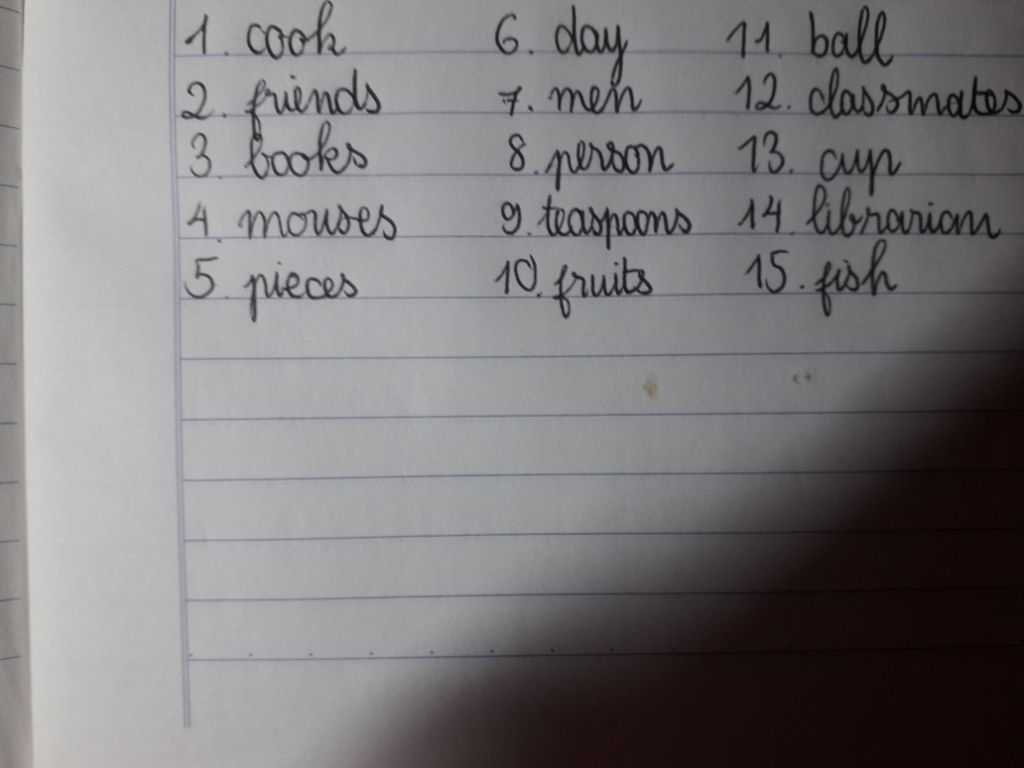 1. cook 6. day 11. ball
2. friends 7. men 12. classmates
3. books 8. person 13. cup
4. mouses 9. teaspoons 14 librarian
5. pieces 10. fruits 15. fish